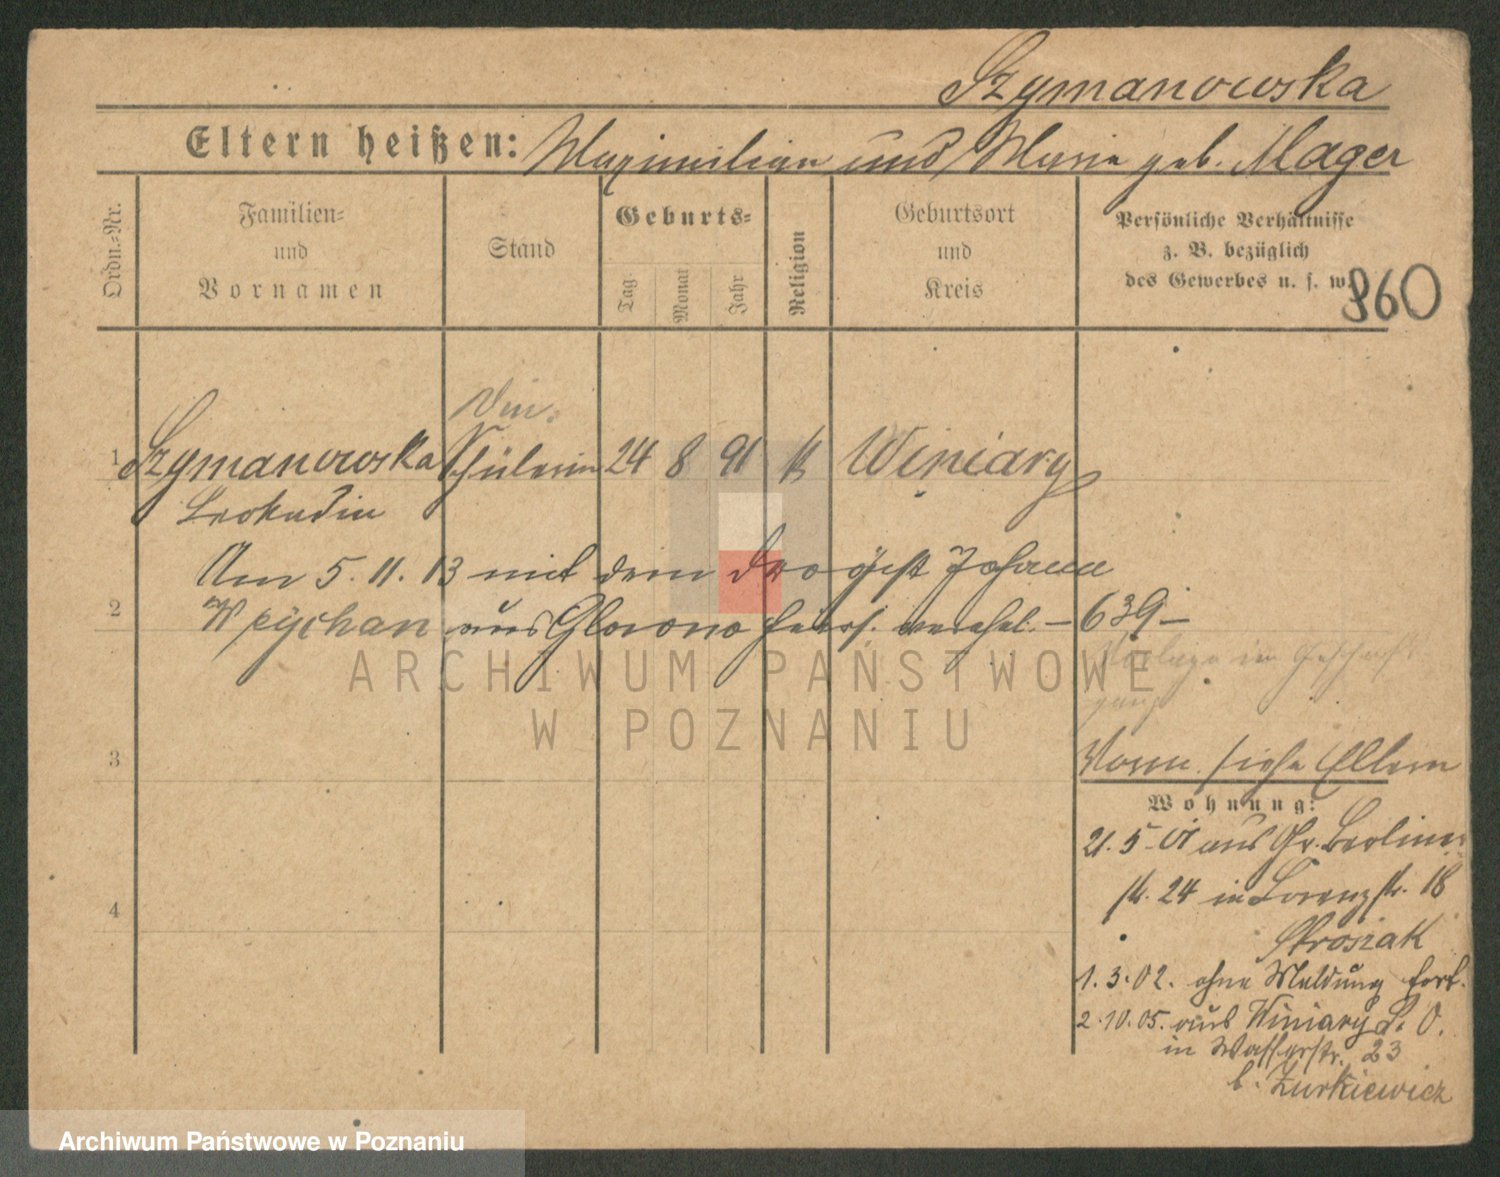 Szymanowska
Eltern heißen: Maximilian und Marie geb. Mager
Ordn.-Nr.
Familien-
und
Vornamen
Stand
Geburts-
Tag
Monat
Jahr
Religion
Geburtsort
und
Kreis
Persönliche Verhältnisse
z. B. bezüglich
des Gewerbes u. s. w.
960
1 Szymanowska Schülerin 24 8 91 k Winiary
Leokadia
Am 5.11.13 mit dem Drogist Johann
2
aus Glowno verehel. – 639 –
ARCHIWUM PAŃSTWOWE
W POZNANIU
3
Vorm. siehe Eltern
Wohnung:
21.5.01 aus Gr. Berliner
str. 24 in Lorenzstr. 18
Stroszak
4
1.3.02. ohne Meldung fort.
2.10.05. aus Winiary P. O.
in Wasserstr. 23
b. Zurkiewicz
Archiwum Państwowe w Poznaniu